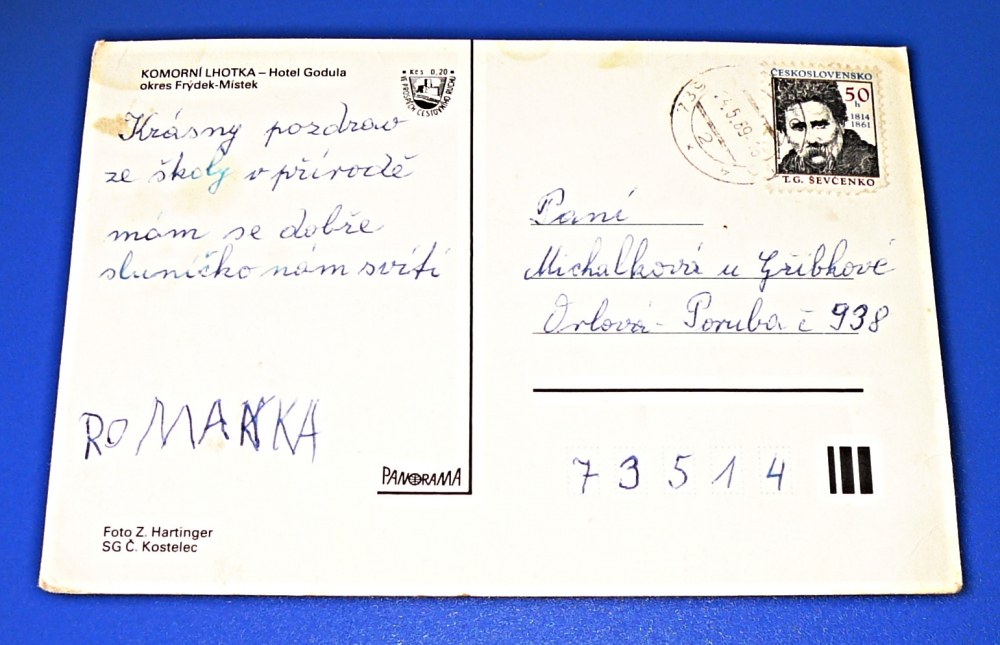 KOMORNÍ LHOTKA – Hotel Godula
okres Frýdek-Místek
Kčs 0,20
VE PROSPĚCH CESTOVNÍHO RUCHU
Krásny pozdrav
ze školy v přírodě
mám se dobře
sluníčko nám svítí
ROMANKA
PANORAMA
Foto Z. Hartinger
SG Č. Kostelec
ČESKOSLOVENSKO
50
h
1814
1861
T.G. ŠEVČENKO
Paní
Michalková u Gřibkové
Orlová - Poruba č 938
73514